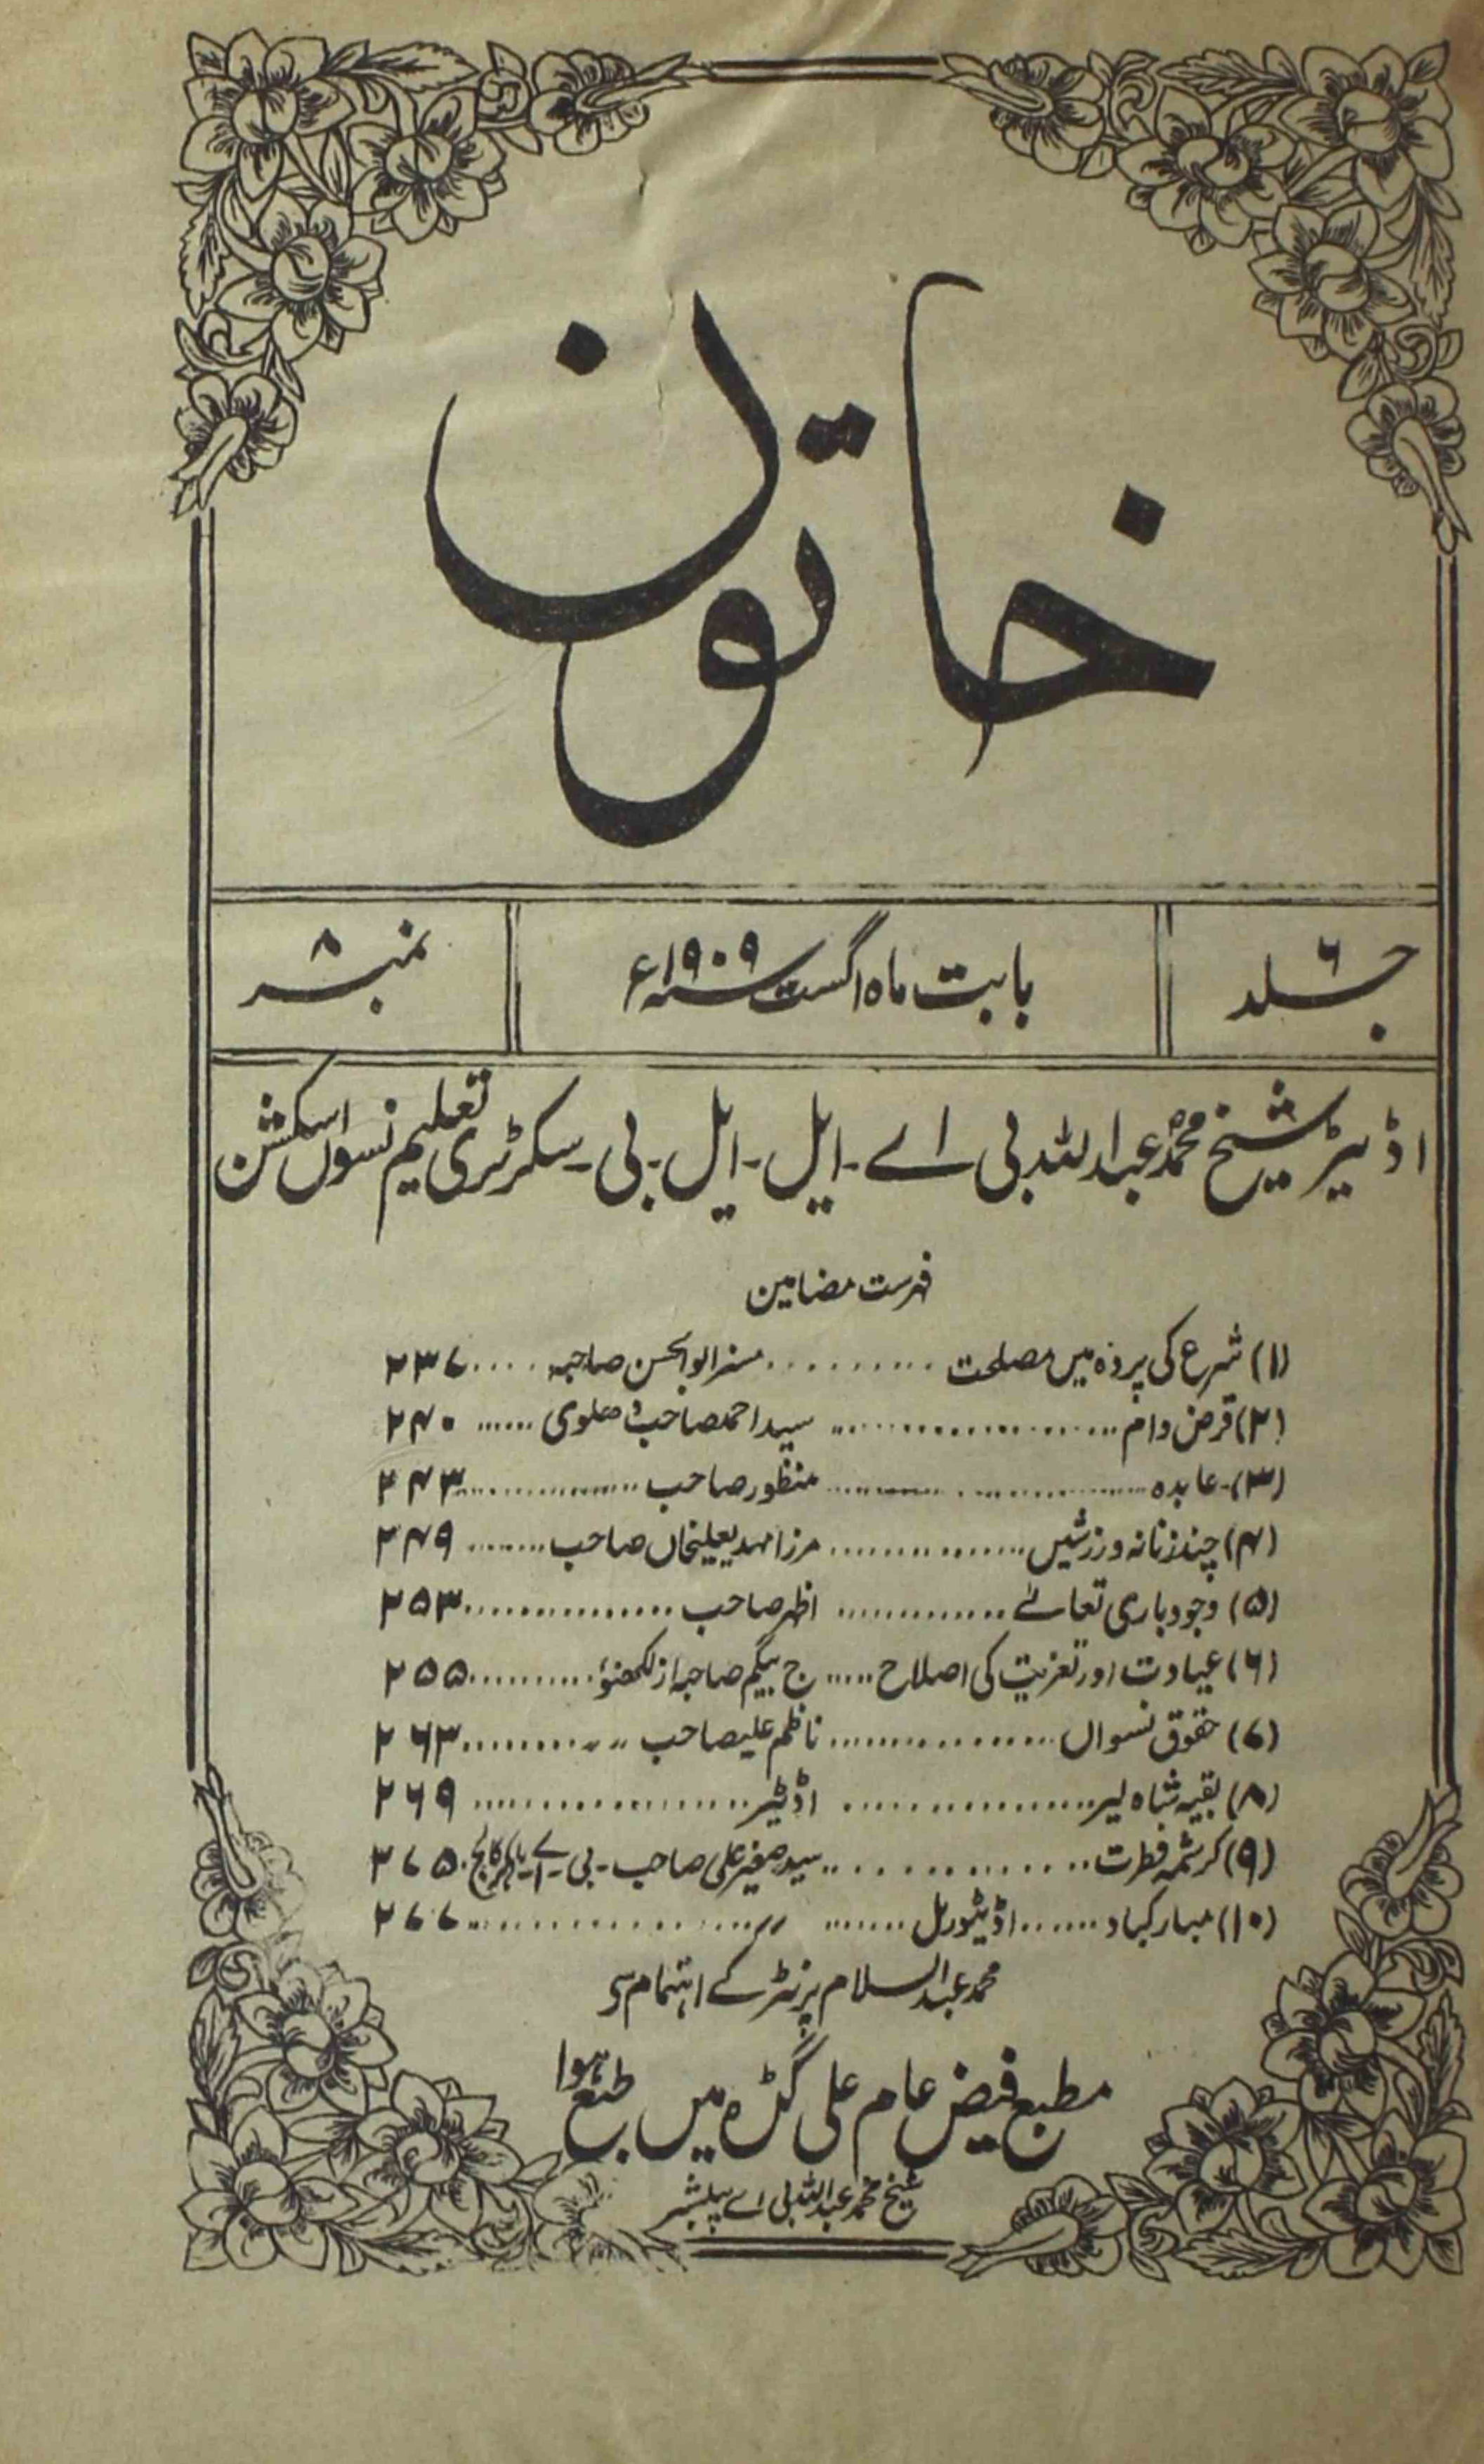 خاتون
جلد ۶
بابت ماہ اگست سنہ ۱۹۰۹ء
نمبر ۸
اڈیٹر شیخ محمد عبداللہ بی اے - ایل - ایل - بی - سکرٹری تعلیم نسواں سکشن
فہرست مضامین
(۱) شرع کی پردہ میں مصلحت .......... مسز ابوالحسن صاحبہ .... ۲۳۷
(۲) قرض دام .......... سید احمد صاحب دہلوی ...... ۲۴۰
(۳) - عابدہ .......... منظور صاحب .......... ۲۴۳
(۴) چند زنانہ ورزشیں .......... مرزا مہدیعلیخاں صاحب ........ ۲۴۹
(۵) وجود باری تعالےٰ .......... اظہر صاحب .......... ۲۵۳
(۶) عیادت اور تعزیت کی اصلاح ..... ج بیگم صاحبہ از لکھنؤ .......... ۲۵۵
(۷) حقوق نسواں .......... ناظم علیصاحب .......... ۲۶۳
(۸) بقیہ شاہ لیر .......... اڈیٹر .......... ۲۶۹
(۹) کرشمہ فطرت .......... سید صغیر علی صاحب - بی - اے - ۲۷۵
(۱۰) مبارکباد ...... اڈیٹوریل ....... // .......... ۲۷۷
محمد عبدالسلام پرنٹر کے اہتمام سی
مطبع فیض عام علی گڑہ میں طبع ہوا
شیخ محمد عبداللہ بی اے پبلشر